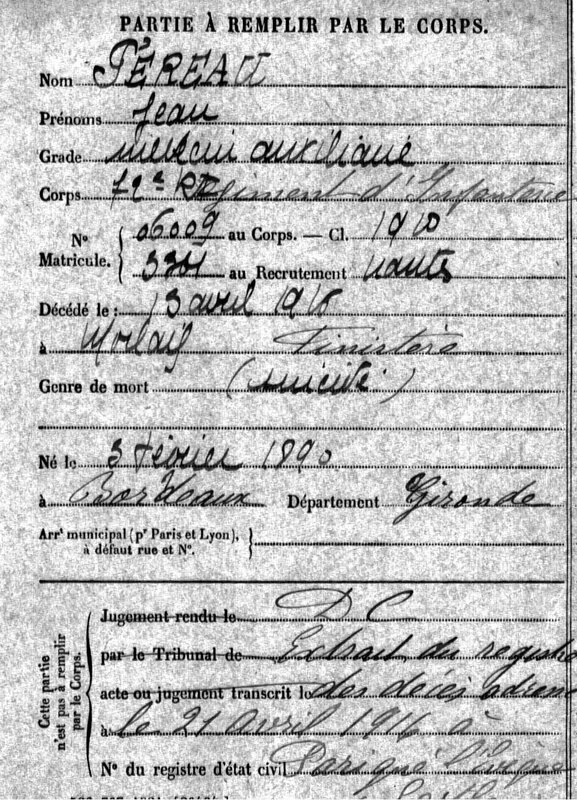 PARTIE À REMPLIR PAR LE CORPS.
Nom PÉREAU
Prénoms Jean
Grade médecin auxiliaire
Corps 72e Régiment d'Infanterie
No Matricule. 06009 au Corps. — Cl. 1910
au Recrutement Nantes
Décédé le : 13 avril
à Morlaix Finistère
Genre de mort (suicide)
Né le 3 février 1890
à Bordeaux Département Gironde
Arrt municipal (pr Paris et Lyon), à défaut rue et No.
Cette partie n'est pas à remplir par le Corps.
Jugement rendu le D C
par le Tribunal de Extrait du registre
acte ou jugement transcrit le des décès
à le 21 avril à
No du registre d'état civil Parigné l'Evêque